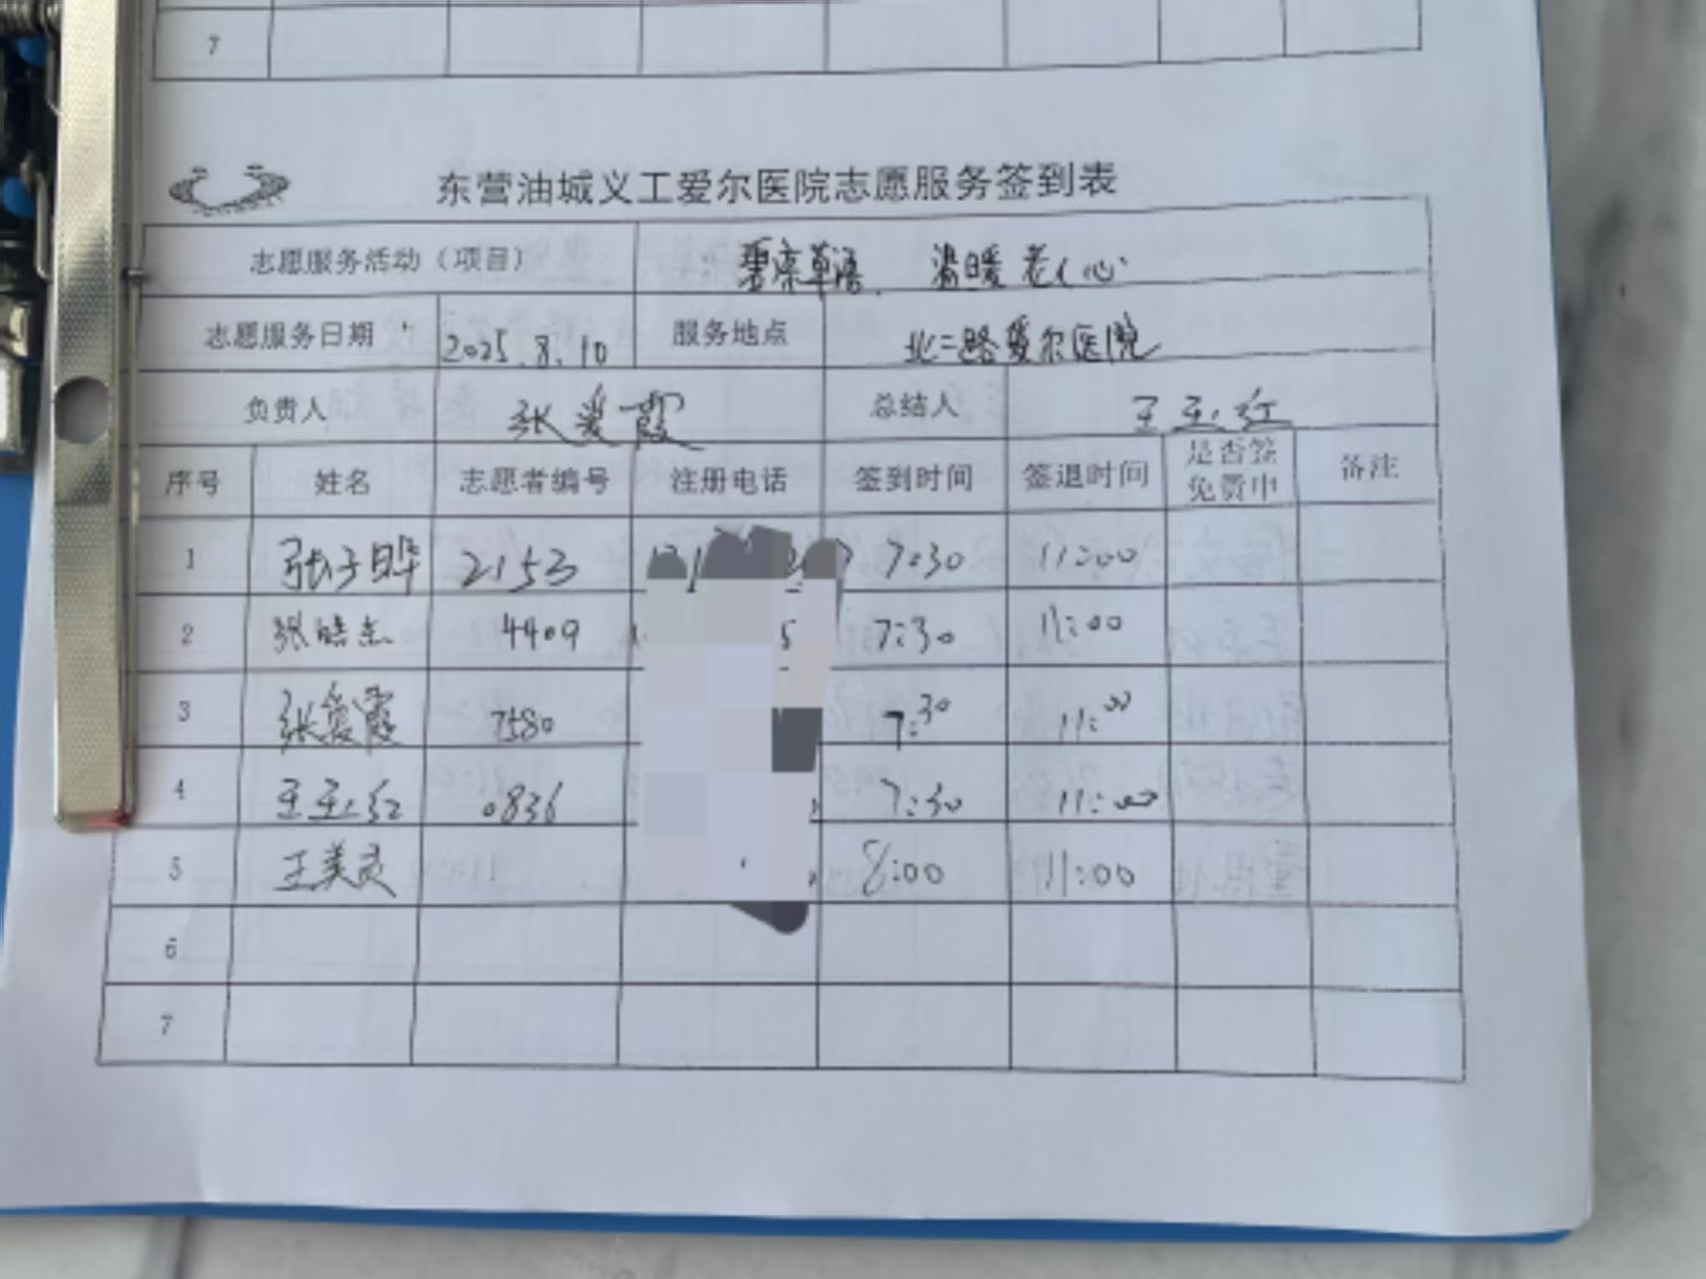 7
东营油城义工爱尔医院志愿服务签到表
志愿服务活动（项目） 温暖老人心
志愿服务日期 2025.8.10 服务地点 北二路爱尔医院
负责人 张爱霞 总结人 王玉红
序号 姓名 志愿者编号 注册电话 签到时间 签退时间 是否签免费中 备注
1 张子晔 2153 7:30 11:00
2 张皓杰 4409 7:30 11:00
3 张爱霞 7580 7:30 11:00
4 王玉红 0836 7:30 11:00
5 王美灵 8:00 11:00
6
7